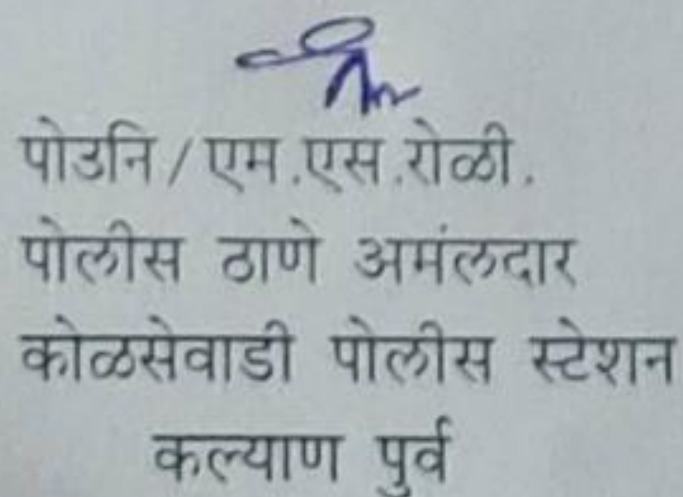 पोउनि/एम.एस.रोळी.
पोलीस ठाणे अमंलदार
कोळसेवाडी पोलीस स्टेशन
कल्याण पुर्व